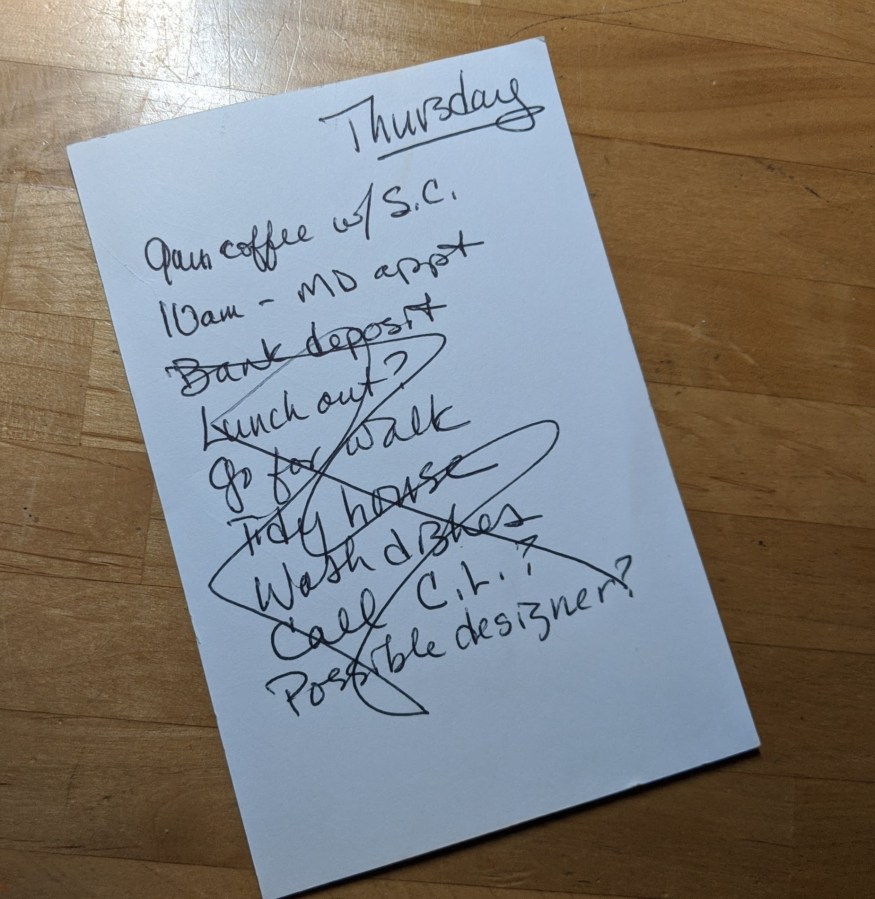 Thursday
9am coffee w/ S.C.
10am - MD appt
Bank deposit
Lunch out?
go for walk
Tidy house
Wash dishes
Call C.L.?
Possible designer?